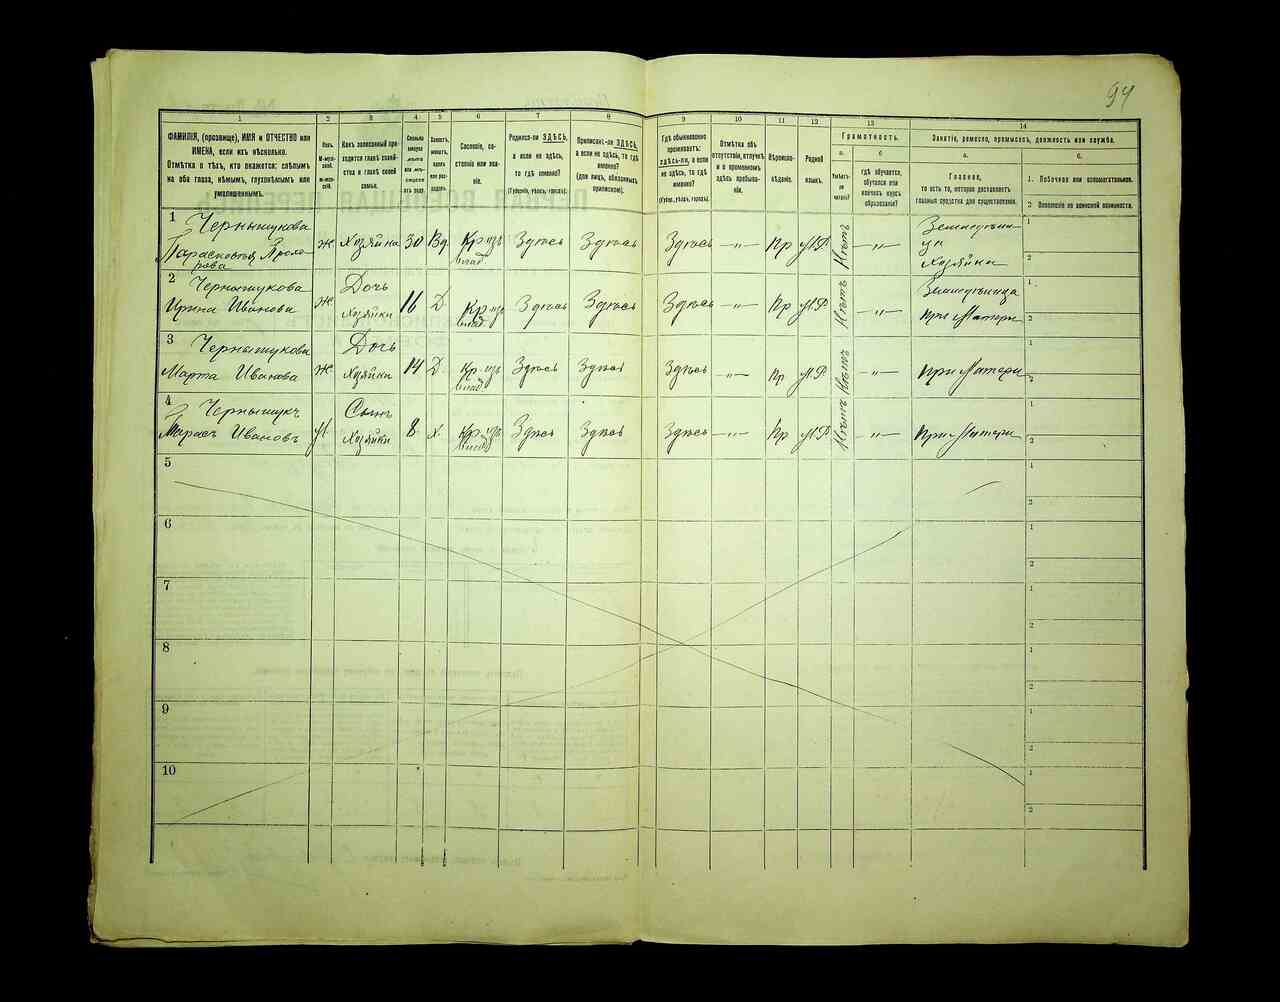 94
1 2 3 4 5 6 7 8 9 10 11 12 13 14
ФАМИЛІЯ, (прозвище), ИМЯ и ОТЧЕСТВО или
ИМЕНА, если ихъ нѣсколько.
Отмѣтка о тѣхъ, кто окажется: слѣпымъ
на оба глаза, нѣмымъ, глухонѣмымъ или
умалишеннымъ.
Полъ.
М-муж-
ской.
Ж-жен-
скій.
Какъ записанный при-
ходится главѣ хозяй-
ства и главѣ своей
семьи.
Сколько
минуло
лѣтъ
или мѣ-
сяцевъ
отъ роду.
Холостъ,
женатъ,
вдовъ
или раз-
веденъ.
Сословіе, со-
стояніе или зва-
ніе.
Родился-ли ЗДѢСЬ,
а если не здѣсь,
то гдѣ именно?
(Губернія, уѣздъ, городъ).
Приписанъ-ли ЗДѢСЬ,
а если не здѣсь, то гдѣ
именно?
(для лицъ, обязанныхъ
припискою).
Гдѣ обыкновенно
проживаетъ:
здѣсь-ли, а если
не здѣсь, то гдѣ
именно?
(Губерн., уѣздъ, городъ).
Отмѣтка объ
отсутствіи, отлучкѣ
и о временномъ
здѣсь пребыва-
ніи.
Вѣроиспо-
вѣданіе.
Родной
языкъ.
Грамотность.
а.
Умѣетъ-
ли
читать?
б.
гдѣ обучается,
обучался или
кончилъ курсъ
образованія?
Занятіе, ремесло, промыселъ, должность или служба.
а.
Главное,
то есть то, которое доставляетъ
главныя средства для существованія.
б.
1. Побочное или вспомогательное.
2 Положеніе по воинской повинности.
1 Чернышукова
Парасковья Прохо-
рова
ж Хозяйка 30 Вд Кр. изъ
влад. Здѣсь Здѣсь Здѣсь —"— Пр МР Нѣтъ —"— Земледѣли-
ца
Хозяйка
1
2
2 Чернышукова
Ирина Иванова
ж Дочь
хозяйки 16 Д Кр. изъ
влад. Здѣсь Здѣсь Здѣсь —"— Пр МР Нѣтъ —"— Земледѣлица
при Матери
1
2
3 Чернышукова
Марта Иванова
ж Дочь
хозяйки 14 Д Кр. изъ
влад. Здѣсь Здѣсь Здѣсь —"— Пр МР Нѣтъ —"— При Матери
1
2
4 Чернышукъ
Тарасъ Ивановъ
М Сынъ
хозяйки 8 Х. Кр. изъ
влад. Здѣсь Здѣсь Здѣсь —"— Пр МР Нѣтъ —"— При Матери
1
2
5 1
2
6 1
2
7 1
2
8 1
2
9 1
2
10 1
2